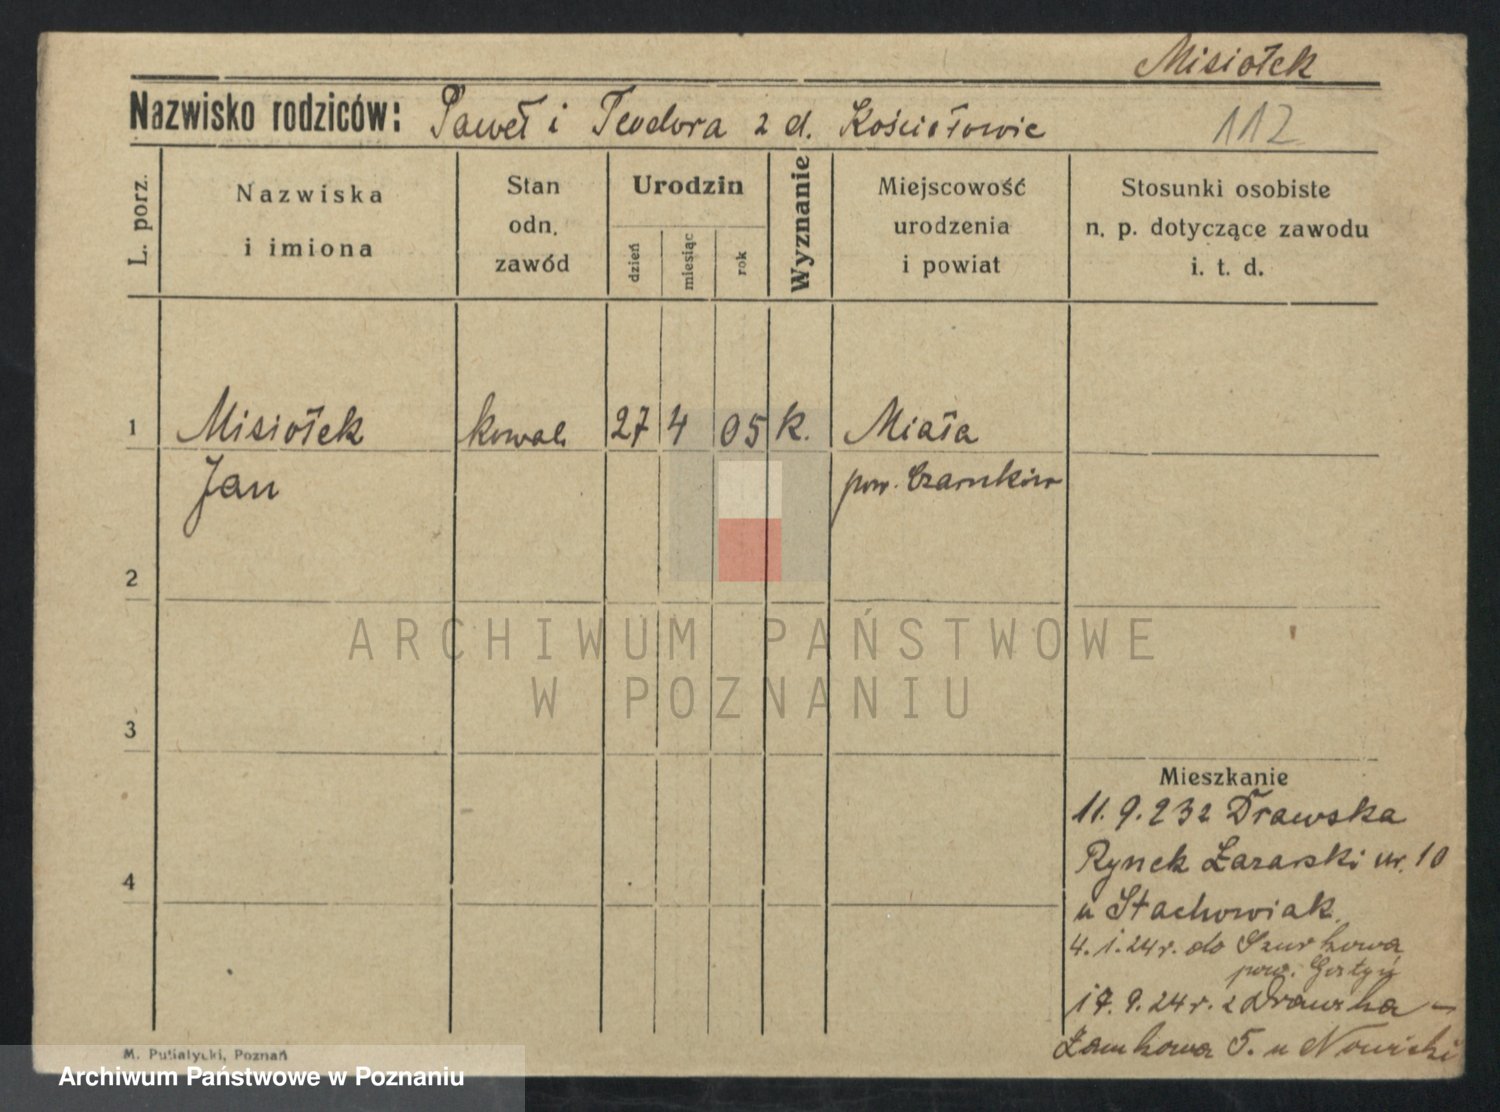 Misiołek
Nazwisko rodziców: Paweł i Teodora z d. Kościołowie
112
L. porz.
Nazwiska
i imiona
Stan
odn.
zawód
Urodzin
dzień
miesiąc
rok
Wyznanie
Miejscowość
urodzenia
i powiat
Stosunki osobiste
n. p. dotyczące zawodu
i. t. d.
1 Misiołek kowal 27 4 05 k. Miała
Jan pow. Czarnków
ARCHIWUM PAŃSTWOWE
W POZNANIU
2
3
4
Mieszkanie
11. 9. 23 z Drawska
Rynek Łazarski nr. 10
u Stachowiak.
4. 1. 24 r. do Szurkowa
pow. Gostyń
17. 9. 24 r. z Drawska –
Zamkowa 5. u Nowicki
M. Putiatycki, Poznań
Archiwum Państwowe w Poznaniu